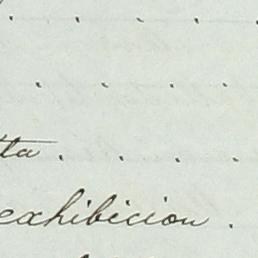 exhibicion .